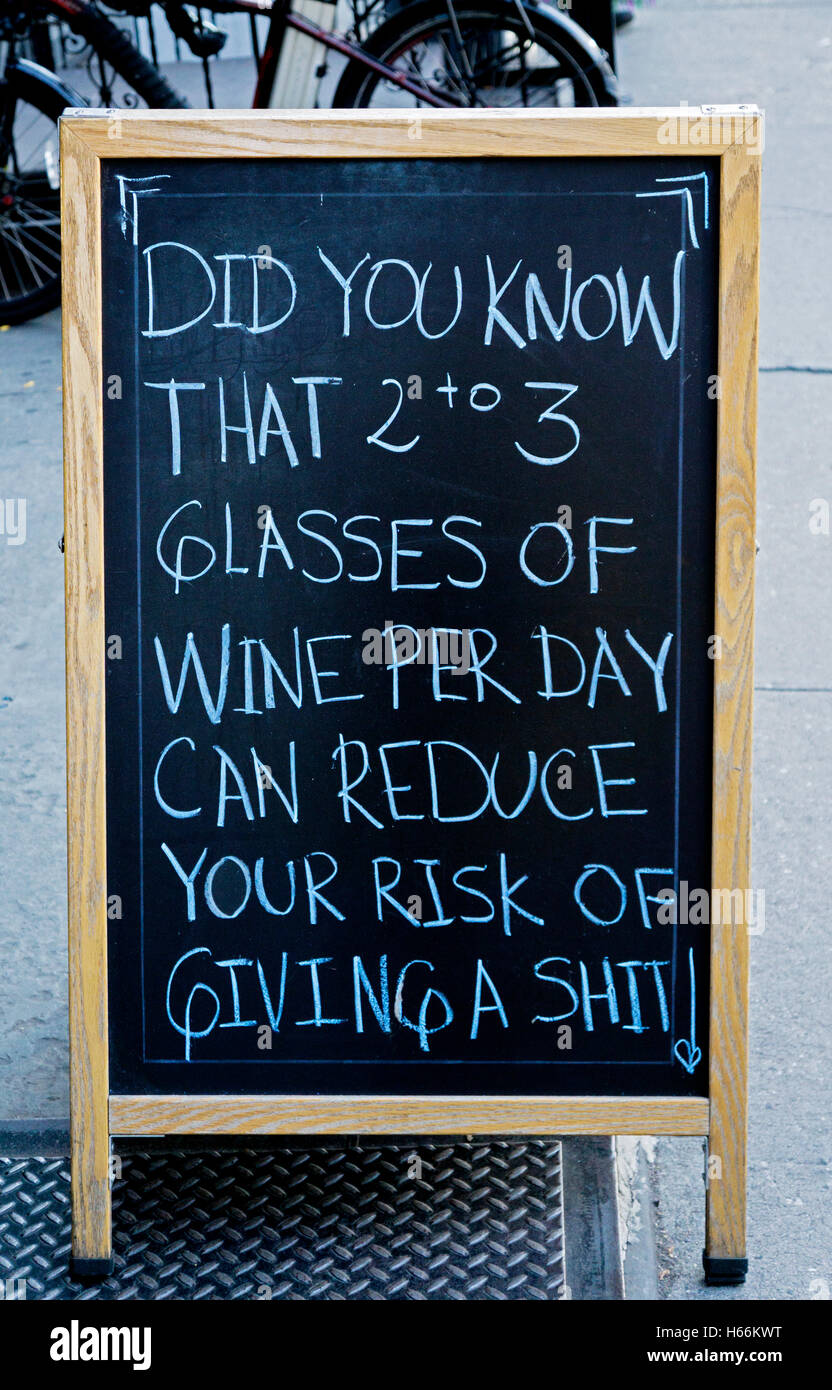 DID YOU KNOW
THAT 2 to 3
GLASSES OF
WINE PER DAY
CAN REDUCE
YOUR RISK OF
GIVING A SHIT!
alamy stock photo
H66KWT
www.alamy.com